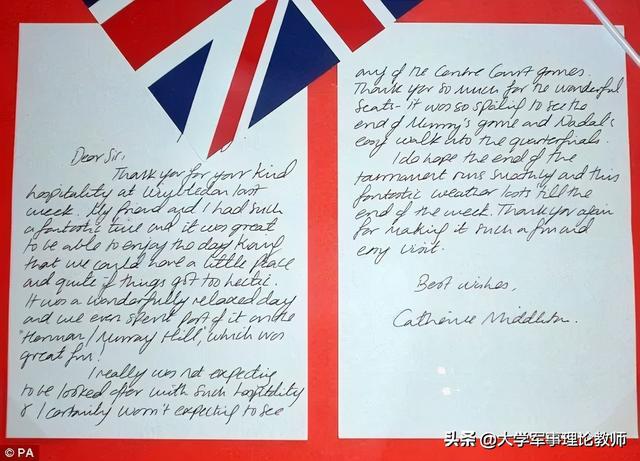 Dear Sir,
Thank you for your kind
hospitality at Wimbledon last
week. My friend and I had such
a fantastic time and it was great
to be able to enjoy the day knowing
that we could have a little peace
and quite if things got too hectic.
It was a wonderfully relaxed day
and we even spent part of it on the
"Henman / Murray Hill", which was
great fun!
I really was not expecting
to be looked after with such hospitality
& I certainly wasn't expecting to see
any of the Centre Court games.
Thank you so much for the wonderful
seats - it was so to see the
end of Murray's game and Nadal's
easy walk into the quarterfinals.
I do hope the end of the
tournament runs smoothly and this
fantastic weather lasts till the
end of the week. Thank you again
for making it such a fun and
easy visit.
Best wishes,
Catherine Middleton.
© PA
头条 @大学军事理论教师